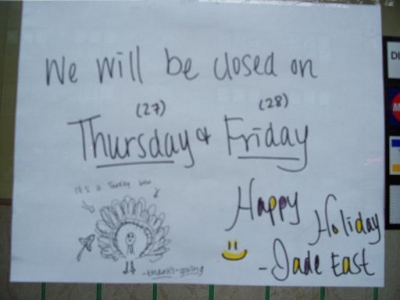 We will be closed on
(27) (28)
Thursday & Friday
It's a Turkey
Happy
Holiday
-Jade East
-thanks-giving